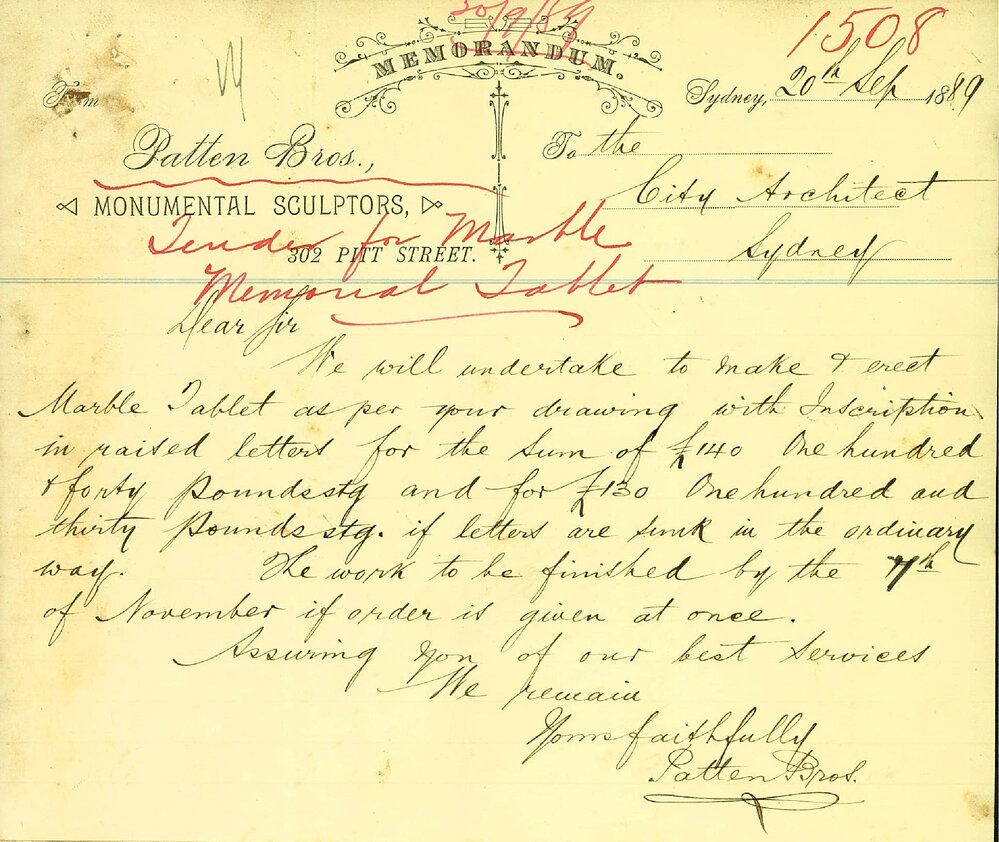 30/9/89
1508
MEMORANDUM.
From
Sydney, 20th Sep 1889
Patten Bros.,
MONUMENTAL SCULPTORS,
302 PITT STREET.
To the
City Architect
Sydney
Tender for Marble
Memorial Tablet
Dear Sir
We will undertake to make & erect
Marble Tablet as per your drawing with Inscription
in raised letters for the sum of £140 One hundred
& forty Pounds stg and for £130 One hundred and
thirty Pounds stg. if letters are sunk in the ordinary
way. The work to be finished by the 7th
of November if order is given at once.
Assuring you of our best services
We remain
Yours faithfully
Patten Bros.